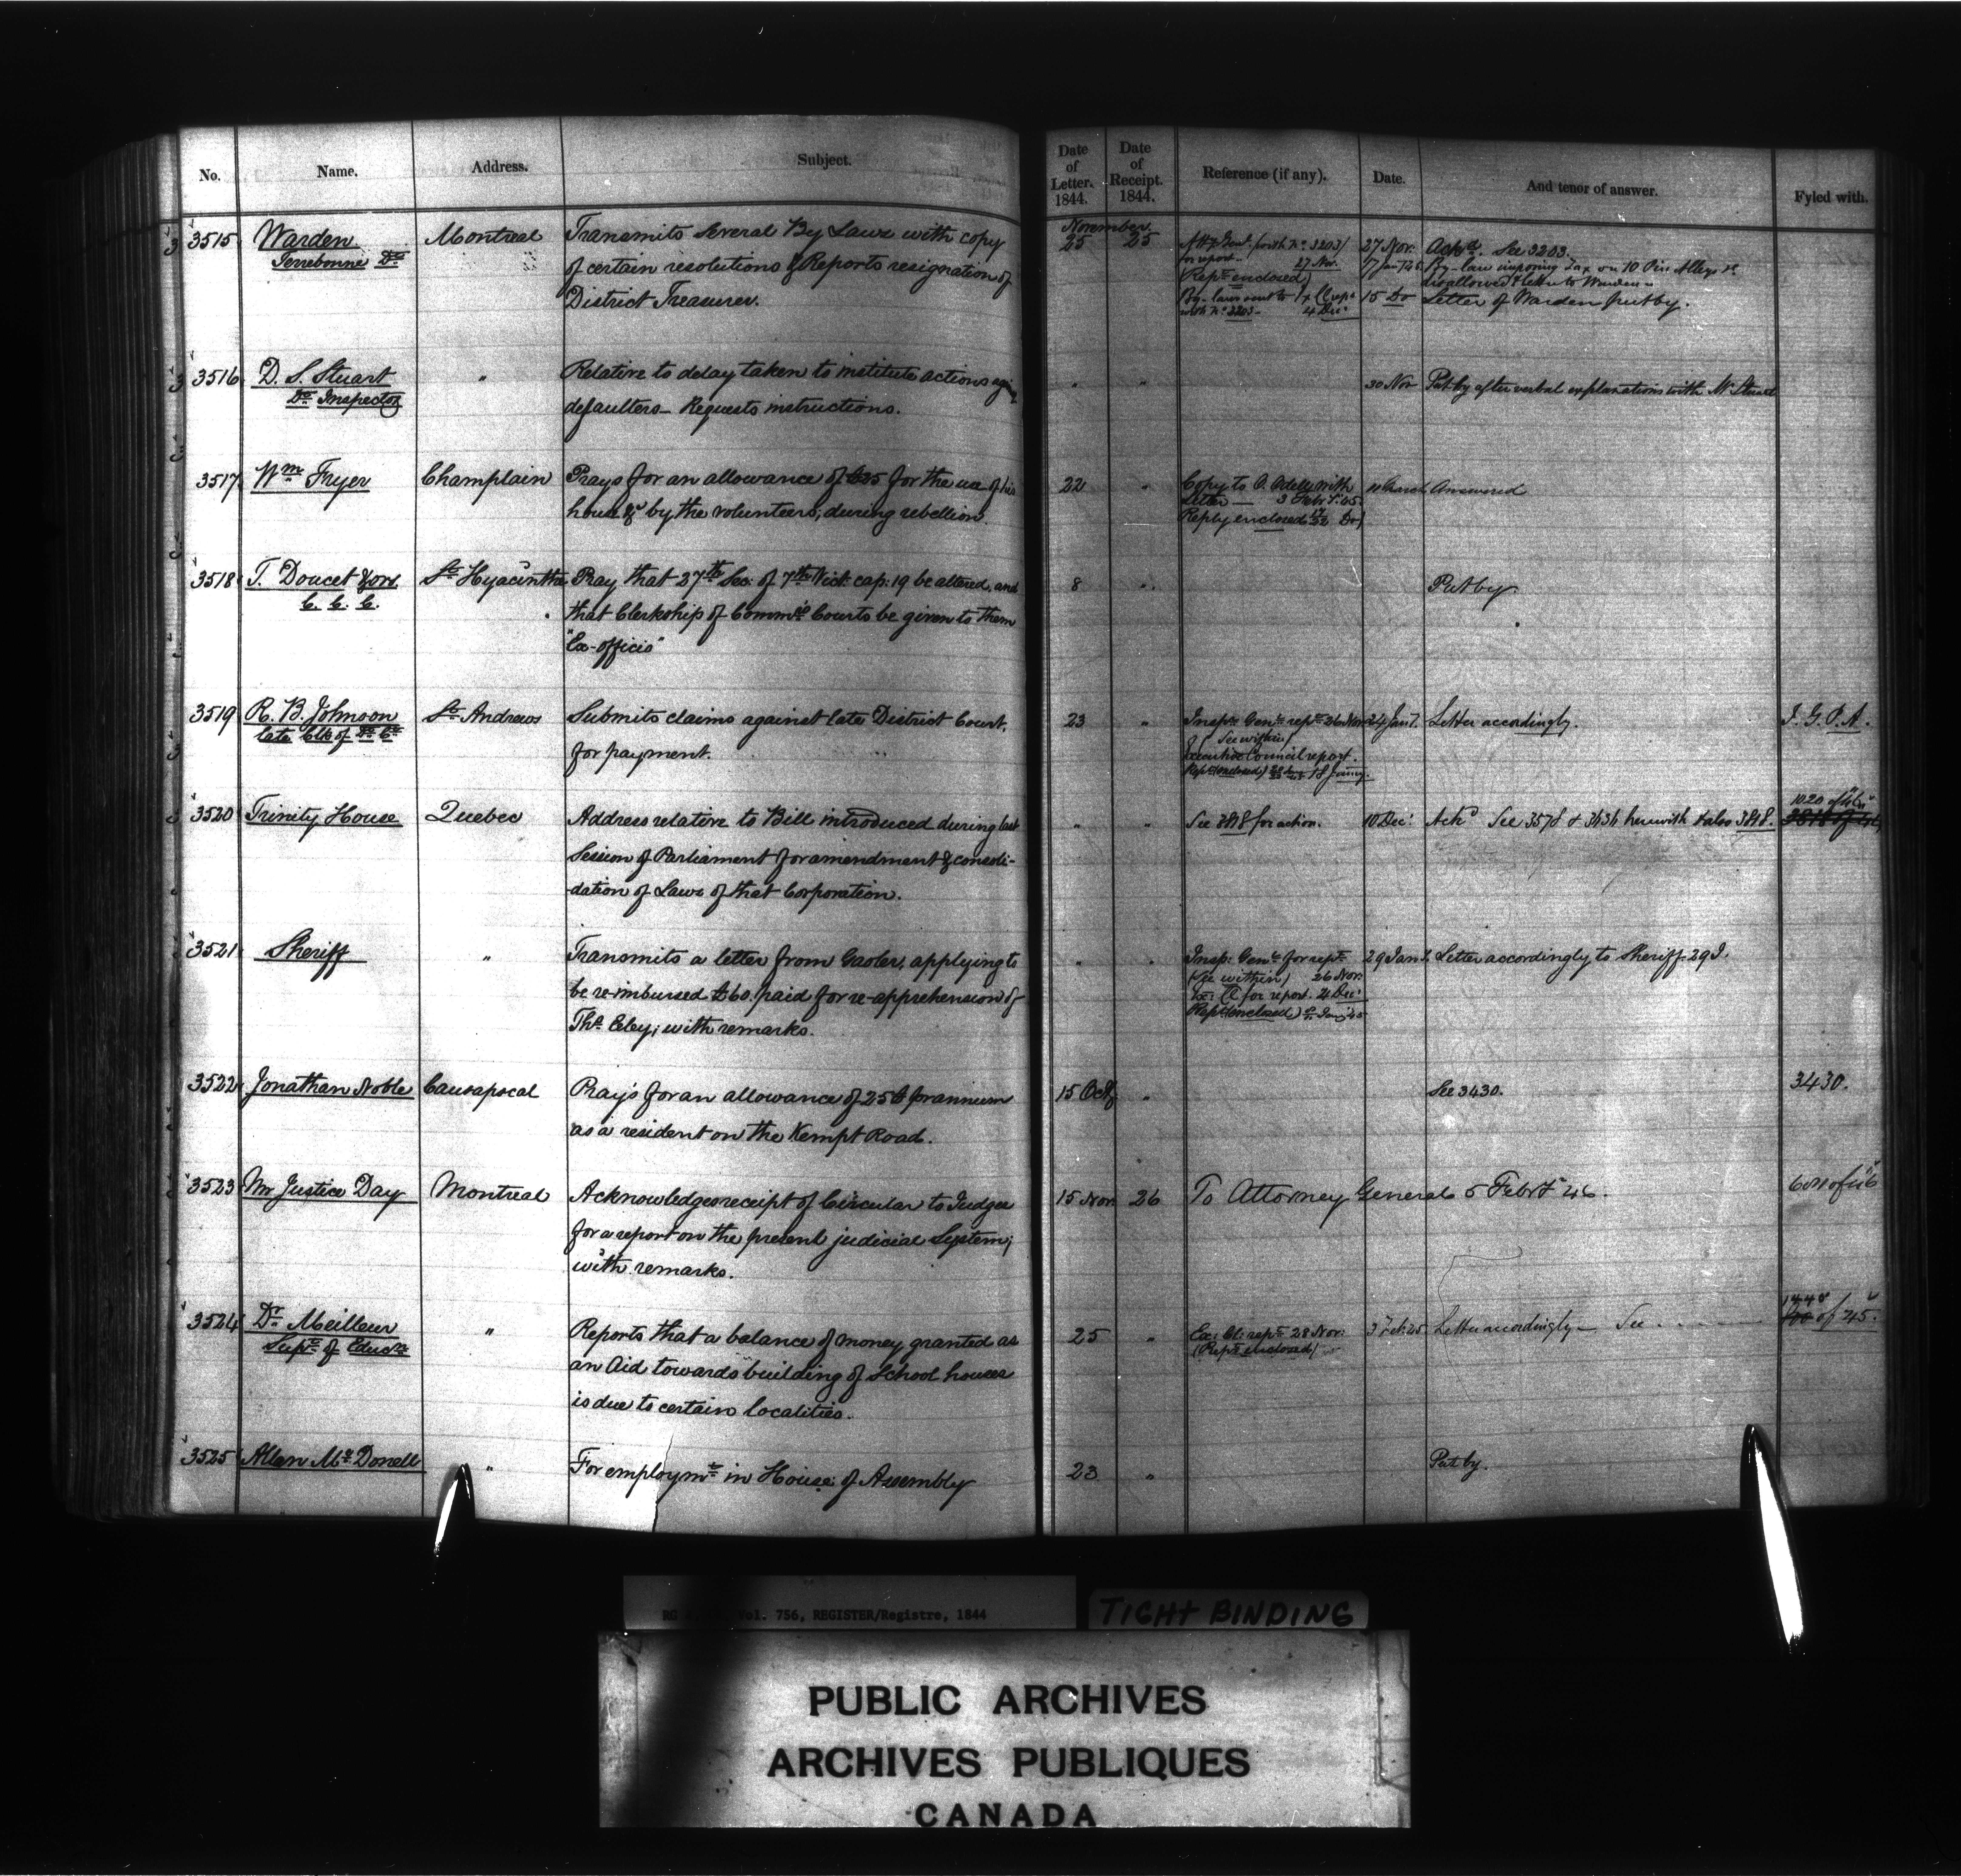 No. Name. Address. Subject. Date of Letter. 1844. Date of Receipt. 1844. Reference (if any). Date. And tenor of answer. Fyled with.
November.
3515 Warden Montreal Transmits several By Laws with copy 25 25 (with No. 3203) 27 Nov: Ackd. See 3203.
Terrebonne Dt. of certain resolutions & Reports resignation of for report 27 Nov. 17 Jany 45 By-law imposing Tax on 10 Pin Alleys
District Treasurer. (Rept. enclosed) disallowed & letter to Warden
By-laws sent to 15 Do Letter of Warden put by.
with No. 3203 4 Dec:
3516 D. S. Stuart " Relative to delay taken to institute actions " " 30 Nov Put by after verbal explanations with Mr Stuart
Do Inspector defaulters - Requests instructions.
3517 Wm. Fryer Champlain Prays for an allowance of £25 for the use of his 22 " Copy to O. Odell with 11 March Answered
house &c by the volunteers, during rebellion. Letter 3 Febry 45
Reply enclosed Do)
3518 T. Doucet & ors. St. Hyacinthe Pray that 27th Sec: of 7th Vict: cap: 19 be altered, and 8 " Put by
C. C. C. that Clerkship of Commrs Courts be given to them
"Ex-officio"
3519 R. B. Johnson St. Andrews Submits claims against late District Court, 23 " Inspr. Genl. rept. 26 Nov 24 Jany. Letter accordingly. I. G. P. A.
late Clk of Dt. Ct. for payment. See within)
Executive Council report.
Rept. (enclosed) 18 Jany.
3520 Trinity House Quebec Address relative to Bill introduced during last " " See 3818 for action. 10 Dec: Ackd See 3578 & 3636 herewith & also 3818. 1020 of
Session of Parliament for amendment & consoli-
dation of Laws of that Corporation.
3521 Sheriff " Transmits a letter from Gaoler, applying to " " Insp: Genl. for rept. 29 Jany. Letter accordingly to Sheriff 29 J.
be re-imbursed £60. paid for re-apprehension of (See within) 26 Nov:
Thos. Eley; with remarks. Ex: Cl for report. 4 Dec:
Rept. (enclosed) Jany 45
3522 Jonathan Noble Causapscal Prays for an allowance of 25£ pr annum 15 Oct " See 3430. 3430.
as a resident on the Kempt Road.
3523 Mr Justice Day Montreal Acknowledges receipt of Circular to Judges 15 Nov 26 To Attorney General 5 Febry 46.
for a report on the present judicial System;
with remarks.
3524 Dr. Meilleur " Reports that a balance of money granted as 25 " Ex: Cl: rept. 28 Nov: 3 Feb: 45 Letter accordingly - See of 45.
Supt. of Educn. an Aid towards building of School houses (Rept. enclosed)
is due to certain localities.
3525 Allan McDonell " For employmt. in House of Assembly 23 " Put by.
Vol. 756, REGISTER/Registre, 1844
TIGHT BINDING
PUBLIC ARCHIVES
ARCHIVES PUBLIQUES
CANADA